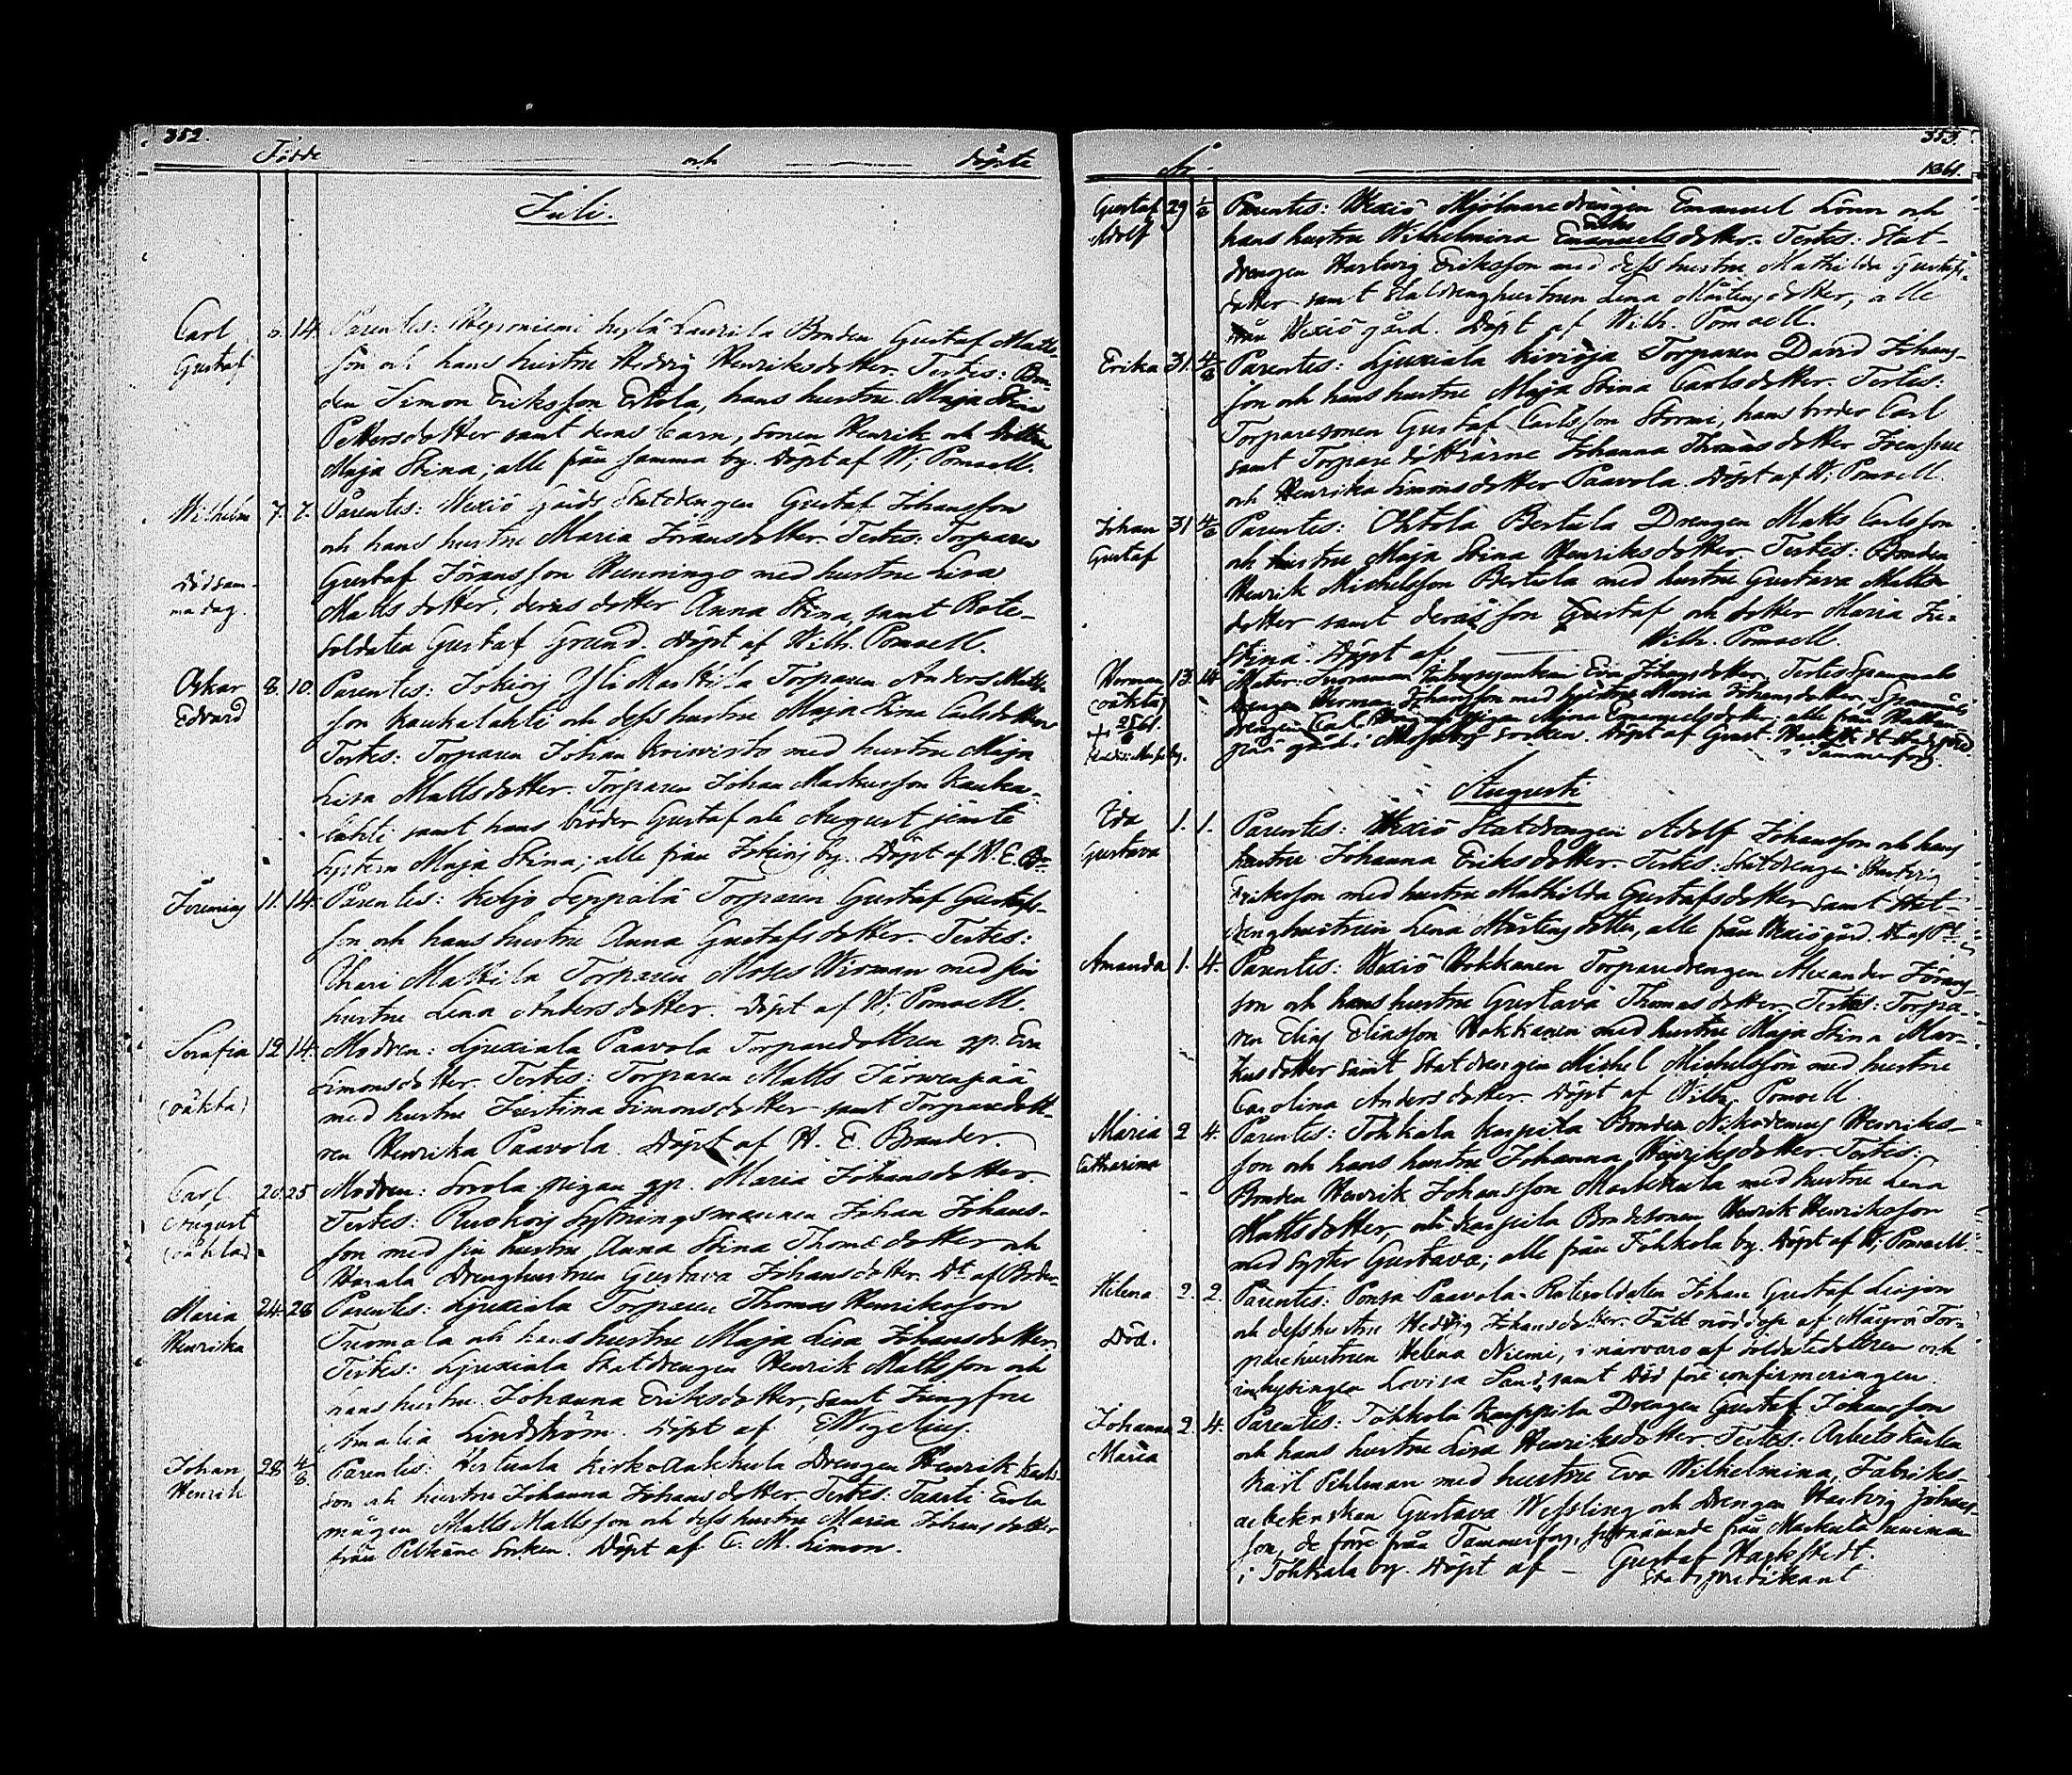 352.
Födde och döpte
Juli.
Carl Gustaf 5. 14. Parentes: Reponiemi Laurila Bonden Gustaf Matts-
son och hans hustru Hedvig Henriksdotter. Testes: Bon-
den Simon Eriksson Erkola, hans hustru Maja Stina
Pettersdotter samt deras barn, sonen Henrik och dottren
Maja Stina; alle från samma by. Döpt af W: Pomoell.
Wilhelm 7. 7. Parentes: Wexiö Gårds Statdrengen Gustaf Johansson
och hans hustru Maria Göransdotter. Testes: Torparen
Död sam-
ma dag.
Gustaf Göransson Hunningo med hustru Lisa
Mattsdotter, deras dotter Anna Stina, samt Rote-
soldaten Gustaf Grund. Döpt af Wilh. Pomoell.
Oskar Edvard 8. 10. Parentes: Jokiois Yli Mattila Torparen Anders Matts-
son Kaukalahti och dess hustru Maja Stina Carlsdotter
Testes: Torparen Johan Koiwisto med hustru Maja
Lisa Mattsdotter. Torparen Johan Markusson Kauka-
lahti samt hans bröder Gustaf och August jemte
system Maja Stina; alle från Jokiois by. Döpt af H. E. Br.
Jeremias 11. 14. Parentes: Keljo Seppälä Torparen Gustaf Gustafs-
son och hans hustru Anna Gustafsdotter. Testes:
Mattila Torparen Moses Wirman med sin
hustru Lena Andersdotter. Döpt af W: Pomoell.
Serafia 12. 14. Modren: Liuxiala Paavola Torparedottren gp. Eva
Simonsdotter. Testes: Torparen Matts Järwenpää
(oäkta) med hustru Justina Simonsdotter samt Torparedott-
ren Henrika Paavola. Döpt af H. E. Brander.
Carl August (oäkta) 20. 25. Modren: Sorola pigan gp. Maria Johansdotter.
Testes: Ruokois Sytningsmannen Johan Johans-
son med sin hustru Anna Stina Thomédotter och
Harala Drenghustrun Gustava Johansdotter. Dt af Brder.
Maria Henrika 24. 28. Parentes: Liuxiala Torparen Thomas Henriksson
Tuomola och hans hustru Maja Lisa Johansdotter.
Testes: Liuxiala Statdrengen Henrik Mattsson och
hans hustru Johanna Eriksdotter, samt Jungfru
Amalia Lindström. Döpt af Mogelius.
Johan Henrik 28. 4/8. Parentes: Herttuala Kirkolakkula Drengen Henrik Karls-
son och hustru Johanna Johansdotter. Testes: Taasti Erola
mågen Matts Mattsson och dess hustru Maria Johansdotter
från Pelkäne Socken. Döpt af C. M. Limon.
353.
År. 1861.
Gustaf Adolf 29. Parentes: Wexiö Mjölnaredrängen Emanuel Lönn och
hans hustru Wilhelmina Eriks Emanuelsdotter. Testes: Stat-
drengen Hartwig Eriksson med dess hustru Mathilda Gustafs-
dotter samt Statdrenghustrun Lena Mårtensdotter, alle
från Wexiö gård. Döpt af Wilh. Pomoell.
Erika 31. 4/8 Parentes: Liuxiala Kivioja Torparen David Johans-
son och hans hustru Maja Stina Carlsdotter. Testes:
Torparesonen Gustaf Carlsson Stormi, hans broder Carl
samt Torpare döttrarne Johanna Thomasdotter
och Henrika Simonsdotter Paavola. Döpt af W: Pomoell.
Johan Gustaf 31 4/8 Parentes: Ohtola Bertula Drengen Matts Carlsson
och hustru Maja Stina Henriksdotter. Testes: Bonden
Henrik Michelsson Bertula med hustru Gustava Matts-
dotter samt deras son Gustaf och dotter Maria Ju-
stina. Döpt af Wilh. Pomoell.
Herman (oäkta) 13. 14 Mater: Eva Johansdotter. Testes: Spanmåls
drengen Herman Johansson med hustru Maria Johansdotter, Spanmåls
drengen Carl pigan Mina Emanuelsdotter, alle från
gård i Socken. Döpt af Gust. Hackstedt
i Tammerfors.
Augusti
Ida Gustava 1. 1. Parentes: Wexiö Statdrengen Adolf Johansson och hans
hustru Johanna Eriksdotter. Testes: Statdrengen Hartvig
Eriksson med hustru Mathilda Gustafsdotter samt Stat-
drenghustrun Lena Mårtensdotter, alle från Wexiö gård. Dt af Pl
Amanda 1. 4. Parentes: Wexiö Hokkanen Torparedrengen Alexander Görans-
son och hans hustru Gustava Thomasdotter. Testes: Torpa-
ren Elias Eliasson Hokkanen med hustru Maja Stina Mar-
kusdotter samt Statdrengen Michel Michelsson med hustru
Carolina Andersdotter. Döpt af Wilh. Pomoell.
Maria Catharina 2 4. Parentes: Tohkala Kaupila Bonden Nikodemus Henriks-
son och hans hustru Johanna Henriksdotter. Testes:
Bonden Henrik Johansson Markkula med hustru Lena
Mattsdotter, och Kaupila Bondesonen Henrik Henriksson
med syster Gustava; alle från Tohkola by. Döpt af W: Pomoell.
Helena 2. 2. Parentes: Ponsa Paavola Rotesoldaten Johan Gustaf
och dess hustru Hedvig Johansdotter. Fått nöddop af Mäyrä Tor-
Död. parehustrun Helena Niemi, i närvaro af soldatedottren och
inhysingen Lovisa Sand, samt död före confirmeringen.
Johanna Maria 2. 4. Parentes: Tohkola Kauppila Drengen Gustaf Johansson
och hans hustru Lisa Henriksdotter. Testes: Arbetskarlen
Karl Pihlman med hustru Eva Wilhelmina, Fabriks-
arbeterskan Gustava Wessling och Drengen Hartvig Johans-
son, de förre från Tammerfors, sistnämnde från Markula hemman
i Tohkala by. Döpt af — Gustaf Hackstedt.
Stadspredikant